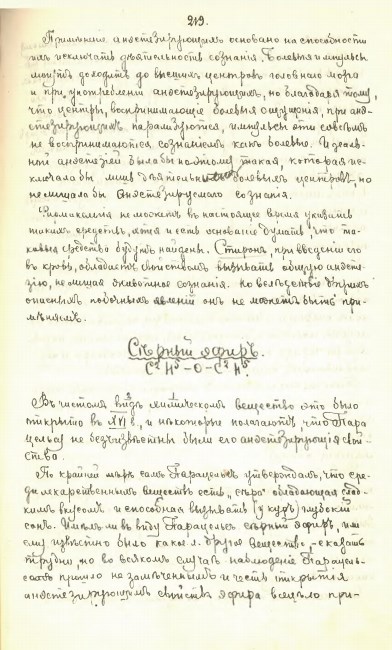 219.
Примѣненіе анэстезирующихъ основано на способности
ихъ исключать дѣятельность сознанія. Болевые импульсы
могутъ доходить до высшихъ центровъ головнаго мозга
и при употребленіи анэстезирующихъ, но благодаря тому,
что центры, воспринимающіе болевыя ощущенія, при анэ-
стезирующихъ парализуются, импульсы эти совсѣмъ
не воспринимаются сознаніемъ какъ болевые. Идеаль-
ной анэстезіей была бы поэтому такая, которая ис-
ключала бы лишь дѣятельность болевыхъ центровъ, но
не лишала бы анестезируемаго сознанія.
Фармакологія не можетъ въ настоящее время указать
такихъ средствъ, хотя и есть основаніе думать что та-
ковыя средства будутъ найдены. при введеніи его
въ кровь, обладаетъ свойствомъ вызывать общую анэсте-
зію, не лишая животное сознанія. Но вслѣдствіе другихъ
опасныхъ побочныхъ явленій онъ не можетъ быть при-
мѣняемъ.
Сѣрный эфиръ.
C² H⁵ – O – C² H⁵.
Въ чистомъ видѣ химическомъ вещество это было
открыто въ XVI в., и нѣкоторые полагаютъ, что Пара
цельсу не безъизвѣстны были его анэстезирующія свой-
ства.
По крайней мѣрѣ самъ Парацельсъ утверждалъ, что сре-
ди лекарственныхъ веществъ есть „сѣра" обладающая слад-
кимъ вкусомъ и способная вызывать (у куръ) глубокій
сонъ. Имѣлъ ли въ виду Парацельсъ сѣрный эфиръ, или
ему извѣстно было какое л. другое вещество, – сказать
трудно, но во всякомъ случаѣ наблюденіе Парацель-
са прошло не замѣченнымъ и честь открытія
анэстезирующихъ свойствъ эфира всецѣло при-